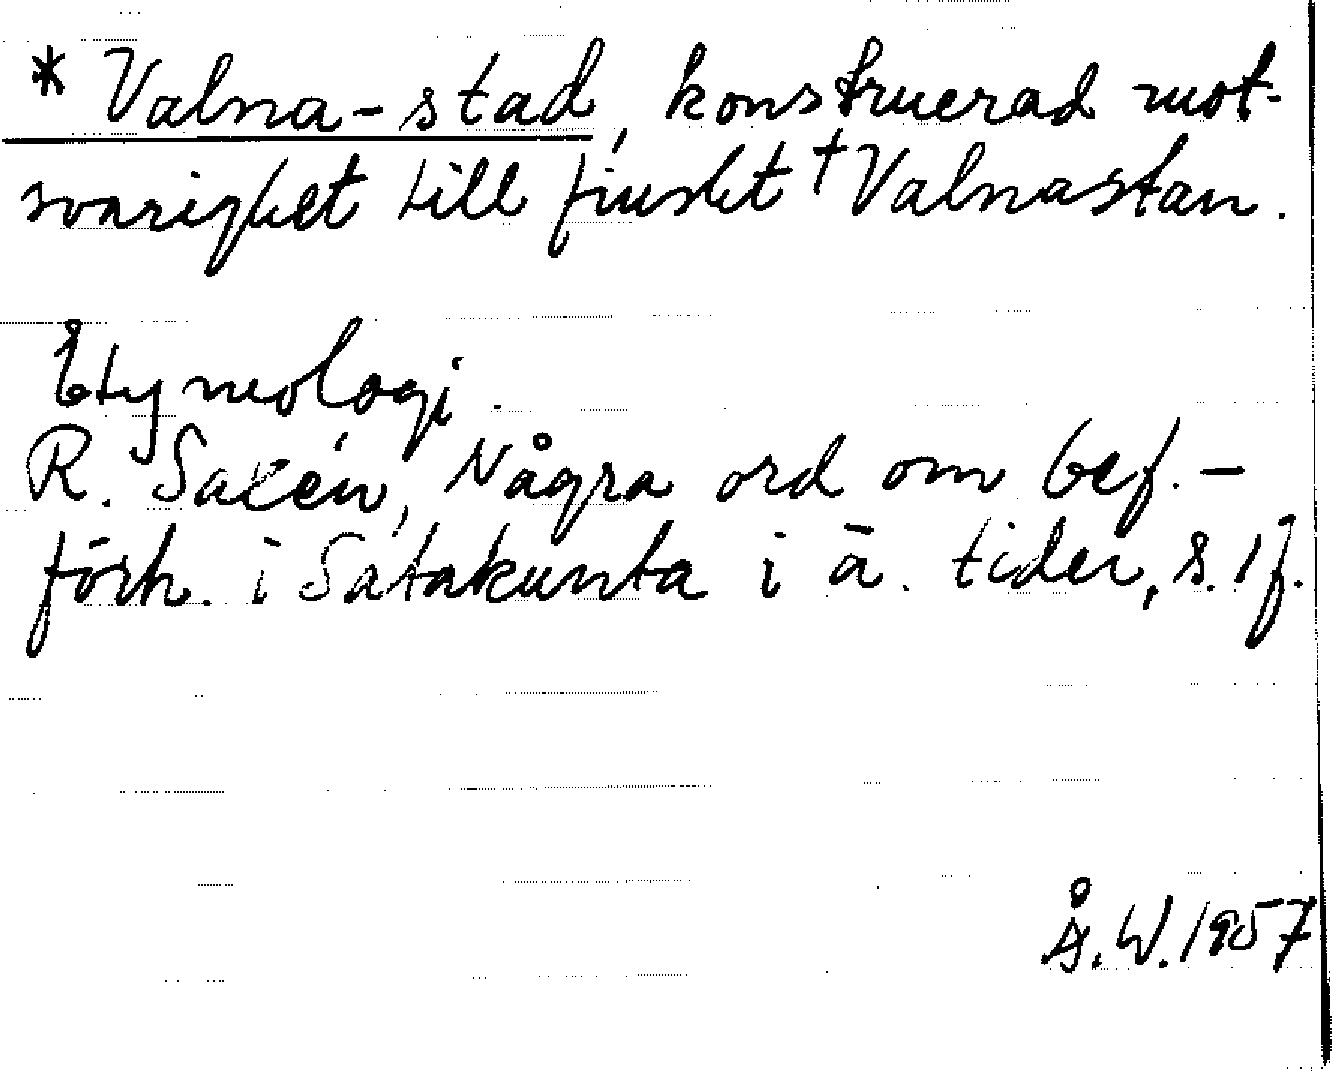 * Valna-stad, konstruerad mot-
svarighet till finskt †Valnastan.
Etymologi.
R. Saxén, Några ord om bef.-
förh. i Satakunta i ä. tider, s. 1 f.
Å. W. 1957